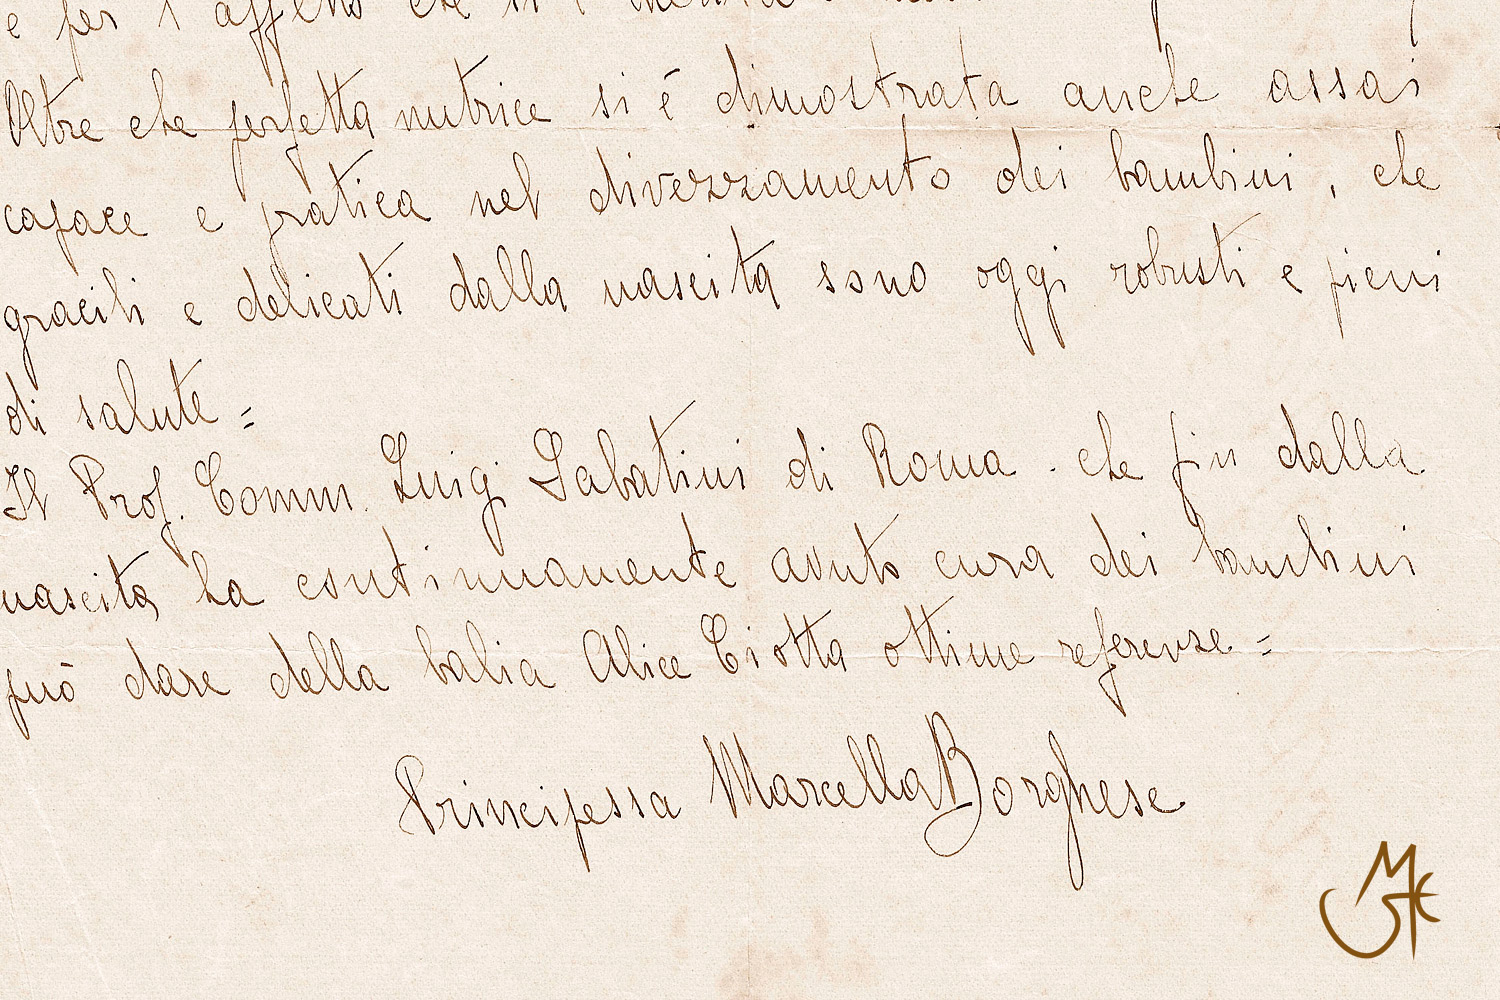 e per l'affetto che
Oltre che perfetta nutrice si é dimostrata anche assai
capace e pratica nel divezzamento dei bambini, che
gracili e delicati dalla nascita sono oggi robusti e pieni
di salute =
Il Prof. Comm. Luigi Sabatini di Roma. che fin dalla
nascita ha continuamente avuto cura dei bambini
può dare della balia Alice Ciotta ottime referenze. =
Principessa Marcella Borghese